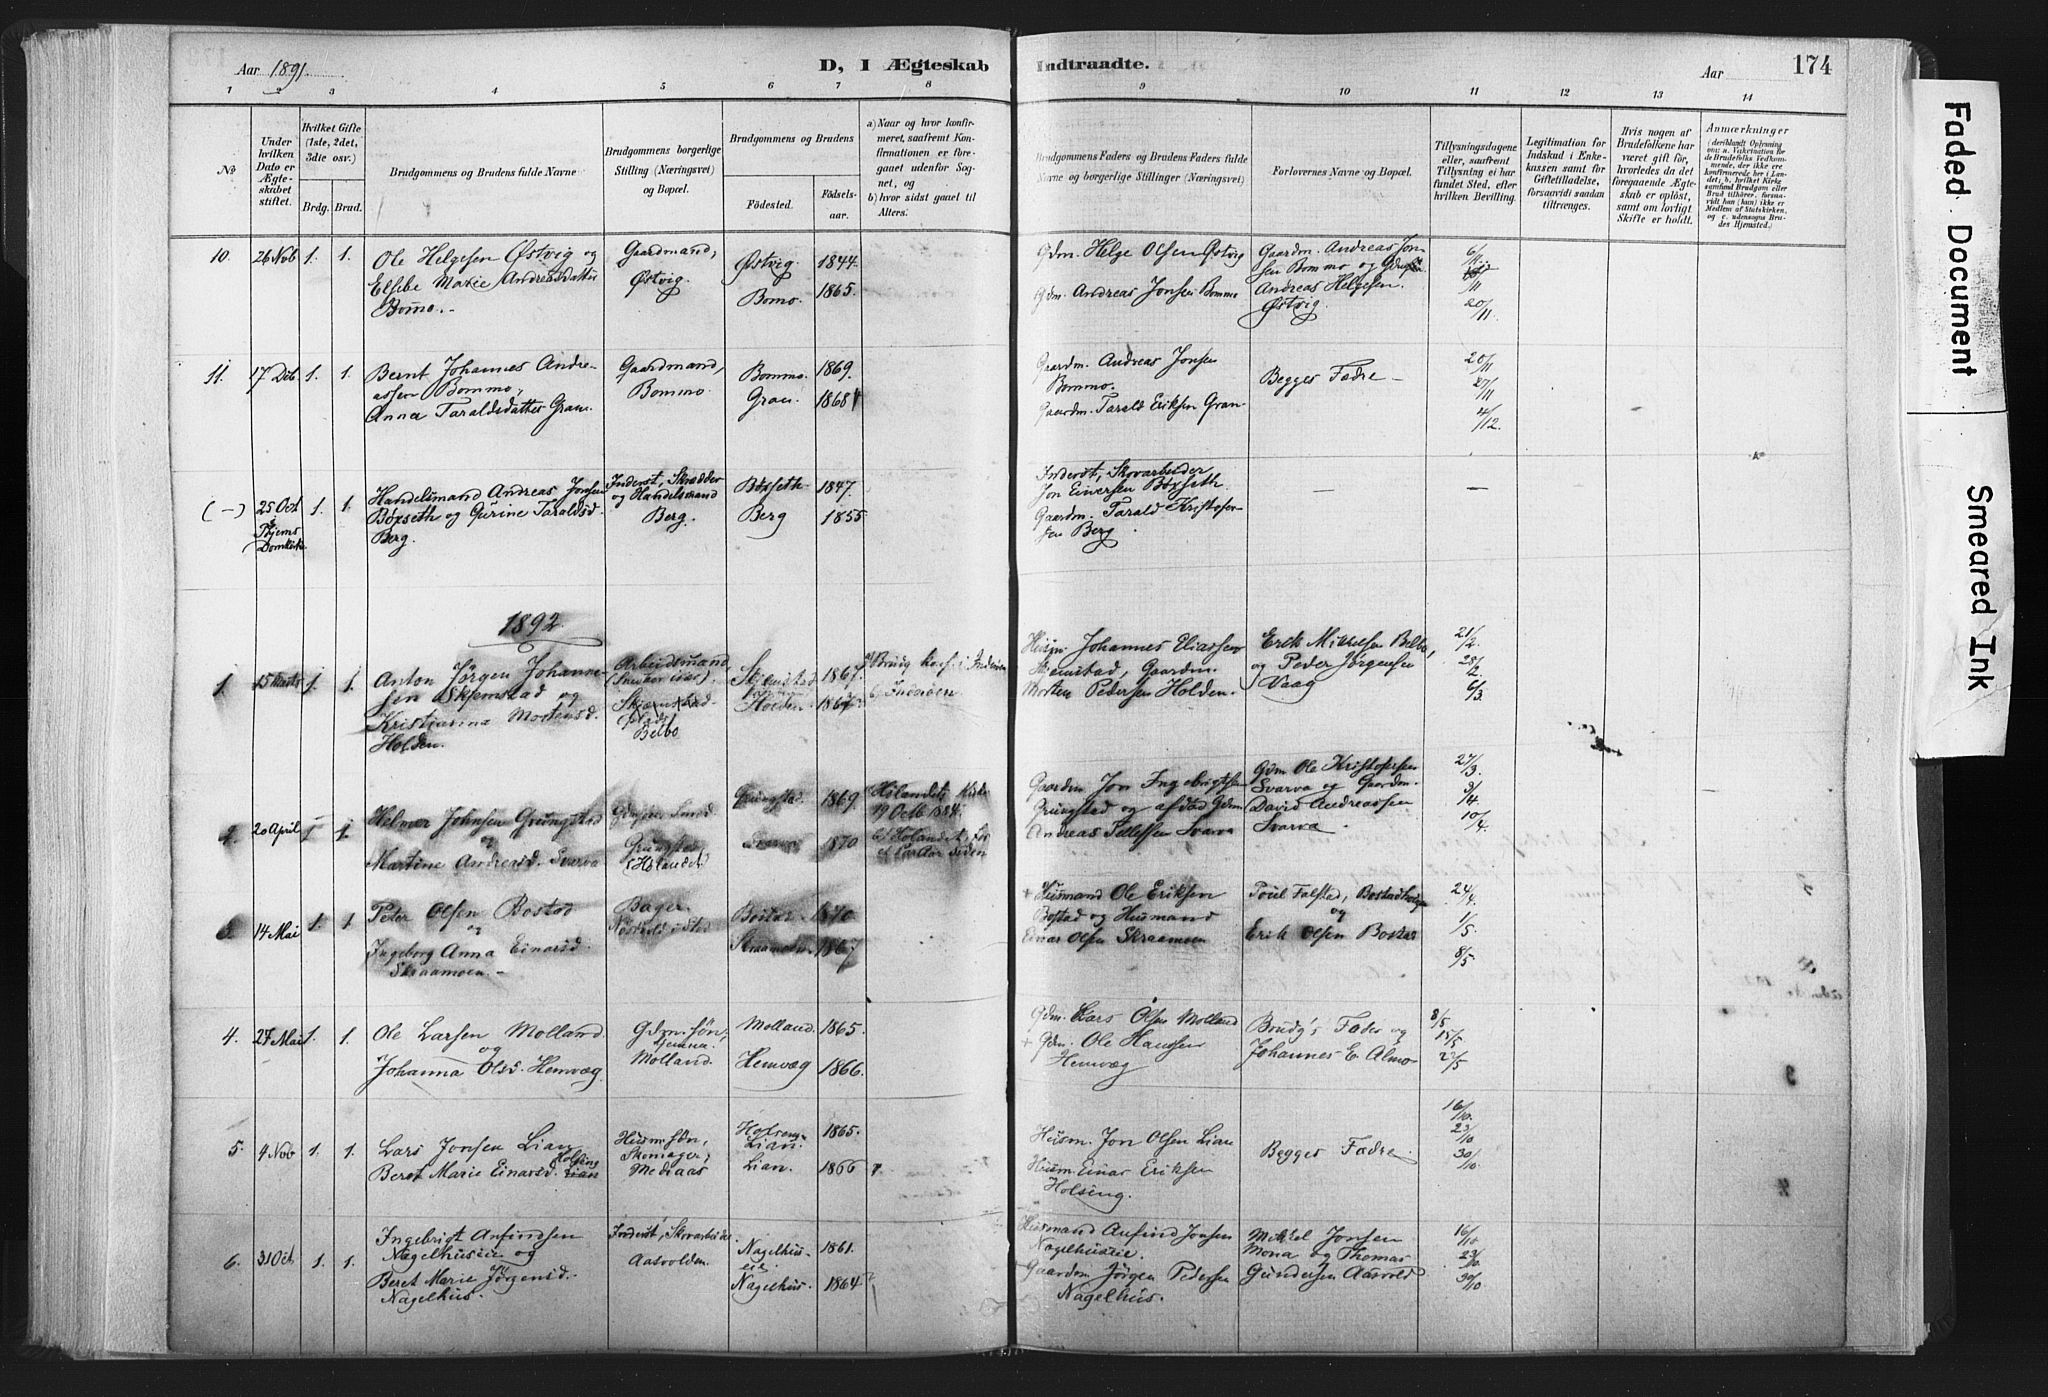 Aar 1891.
D, I Ægteskab
Indtraadte.
Aar
174
1 2 3 4 5 6 7 8 9 10 11 12 13 14
No
Under hvilken Dato er Ægteskabet stiftet.
Hvilket Gifte (1ste, 2det, 3die osv.)
Brdg. Brud.
Brudgommens og Brudens fulde Navne
Brudgommens borgerlige Stilling (Næringsvei) og Bopæl.
Brudgommens og Brudens
Fødested.
Fødselsaar.
a) Naar og hvor konfirmeret, saafremt Konfirmationen er foregaaet udenfor Sognet, og
b) hvor sidst gaaet til Alters.
Brudgommens Faders og Brudens Faders fulde Navne og borgerlige Stillinger (Næringsvei)
Forlovernes Navne og Bopæl.
Tillysningsdagene eller, saafremt Tillysning ei har fundet Sted, efter hvilken Bevilling.
Legitimation for Indskud i Enkekassen samt for Giftetilladelse, forsaavidt saadan tiltrænges.
Hvis nogen af Brudefolkene har været gift før, hvorledes da det foregaaende Ægteskab er opløst, samt om lovligt Skifte er holdt.
Anmærkninger
10. 26 Nob 1. 1.
Ole Helgesen Østvig og
Elsebe Marie Andreasdatter
Bomo.
Gaardmand,
Østvig.
Østvig. 1844.
Bomo. 1865.
Gdm. Helge Olsen Østvig
Gdm. Andreas Jonsen Bommo
Gaardm. Andreas Jon-
sen Bommo og
Andreas Helgesen
Østvig.
6/11
20/11
11. 17 Deb 1. 1.
Bernt Johannes Andre-
assen Bommo,
Anna Taraldsdatter Gran.
Gaardmand,
Bommo
Bommo. 1869.
Gran. 1868
Gaardm. Andreas Jonsen
Bommo.
Gaardm. Tarald Eriksen Gran
Begges Fædre
20/11
27/11
4/12.
(-) 25 Oct
Domkirke
1. 1.
Handelsmand Andreas Jonsen
Bøxseth og Gurine Taraldsd.
Berg.
Inderst, Skrædder
og Handelsmand
Berg.
Bøxseth 1847.
Berg 1855
Inderst, Skovarbeider
Jon Einersen Bøxseth.
Gaardm. Tarald Kristofer-
sen Berg
— —
1892.
1. 15 Marts 1. 1.
Anton Jørgen Johanne-
sen Skjemstad og
Kristianna Mortensd.
Holden.
Arbeidsmand,
Belbo
Skjemstad 1867.
Holden 1867
Inderøen
Husm. Johannes Eliassen
Skjemstad, Gaardm.
Morten Pedersen Holden.
Erik Mikkelsen Belbo,
og Peder Jørgensen
Vaag
21/2.
28/2
6/3
2. 20 April 1 1.
Helmer Johnsen Grungstad
og
Martine Andreasd. Svarva
Gdmsøn, Smed
Grungstad
Grungstad. 1869.
Svarva 1870
19 Octb 1884.
Gaardm. Jon Ingebrigtsen
Grungstad og afdød Gdm
Andreas Tellefsen Svarva
Gdm Ole Kristofersen
Svarva og Gaardm.
David Andreassen
Svarva
27/3.
3/4
10/4.
3. 14 Mai 1. 1
Peter Olsen Bostad
og
Ingeborg Anna Einarsd.
Skraamoen.
Bager
Bostad 1870
Skraamoen. 1867
Husmand Ole Eriksen
Bostad og Husmand
Einar Olsen Skraamoen
Poul Falstad,
og
Erik Olsen Bostad
24/4.
1/5
8/5
4. 27 Mai 1. 1.
Ole Larsen Molland.
og
Johanna Olsd. Hemvæg
Gdm. søn,
hjemme.
Molland.
Molland. 1865.
Hemvæg 1866.
Gdm. Lars Olsen Molland
+ Gdm. Ole Hanssen
Hemvæg
Brudg's Fader og
Johannes E. Almo
8/5
15/5
22/5
5. 4 Nob 1. 1.
Lars Jonsen Lian
Beret Marie Einarsd. Holsing
Husm. søn,
Skomager,
Medaas
Holsing
Lian. 1865.
Lian. 1866
Husm. Jon Olsen Lian
Husm. Einar Eriksen
Holsing.
Begges Fædre.
16/10.
23/10
30/10.
6. 31 Oct. 1. 1.
Ingebrigt Arfindsen
Nagelhuseie og
Beret Marie Jørgensd.
Nagelhus.
Inderst, Skovarbeider
Aasvolden.
Nagelhus-
eie. 1861.
Nagelhus. 1864
Husmand Arfind Jonsen
Nagelhuseie.
Gaardm Jørgen Pedersen
Nagelhus.
Mikkel Jonsen
Mona og Thomas
Gundersen Aasvold
16/10
23/10.
30/10
Faded Document
Smeared Ink